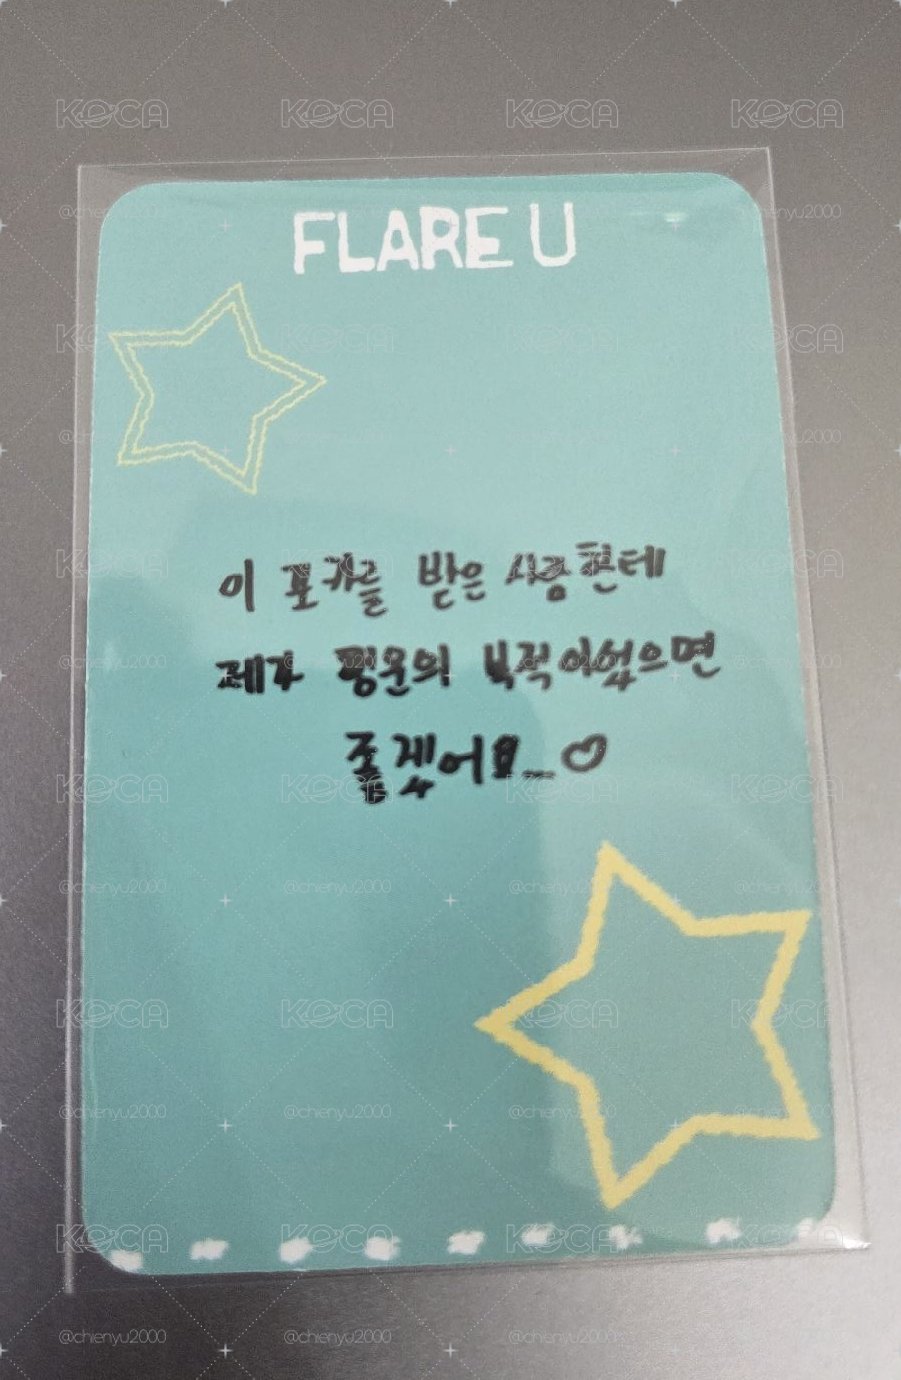 FLARE U
이 포카를 받은 사람한테
제가 행운의 부적이었으면
좋겠어요_♡
KOCA
@chienyu2000